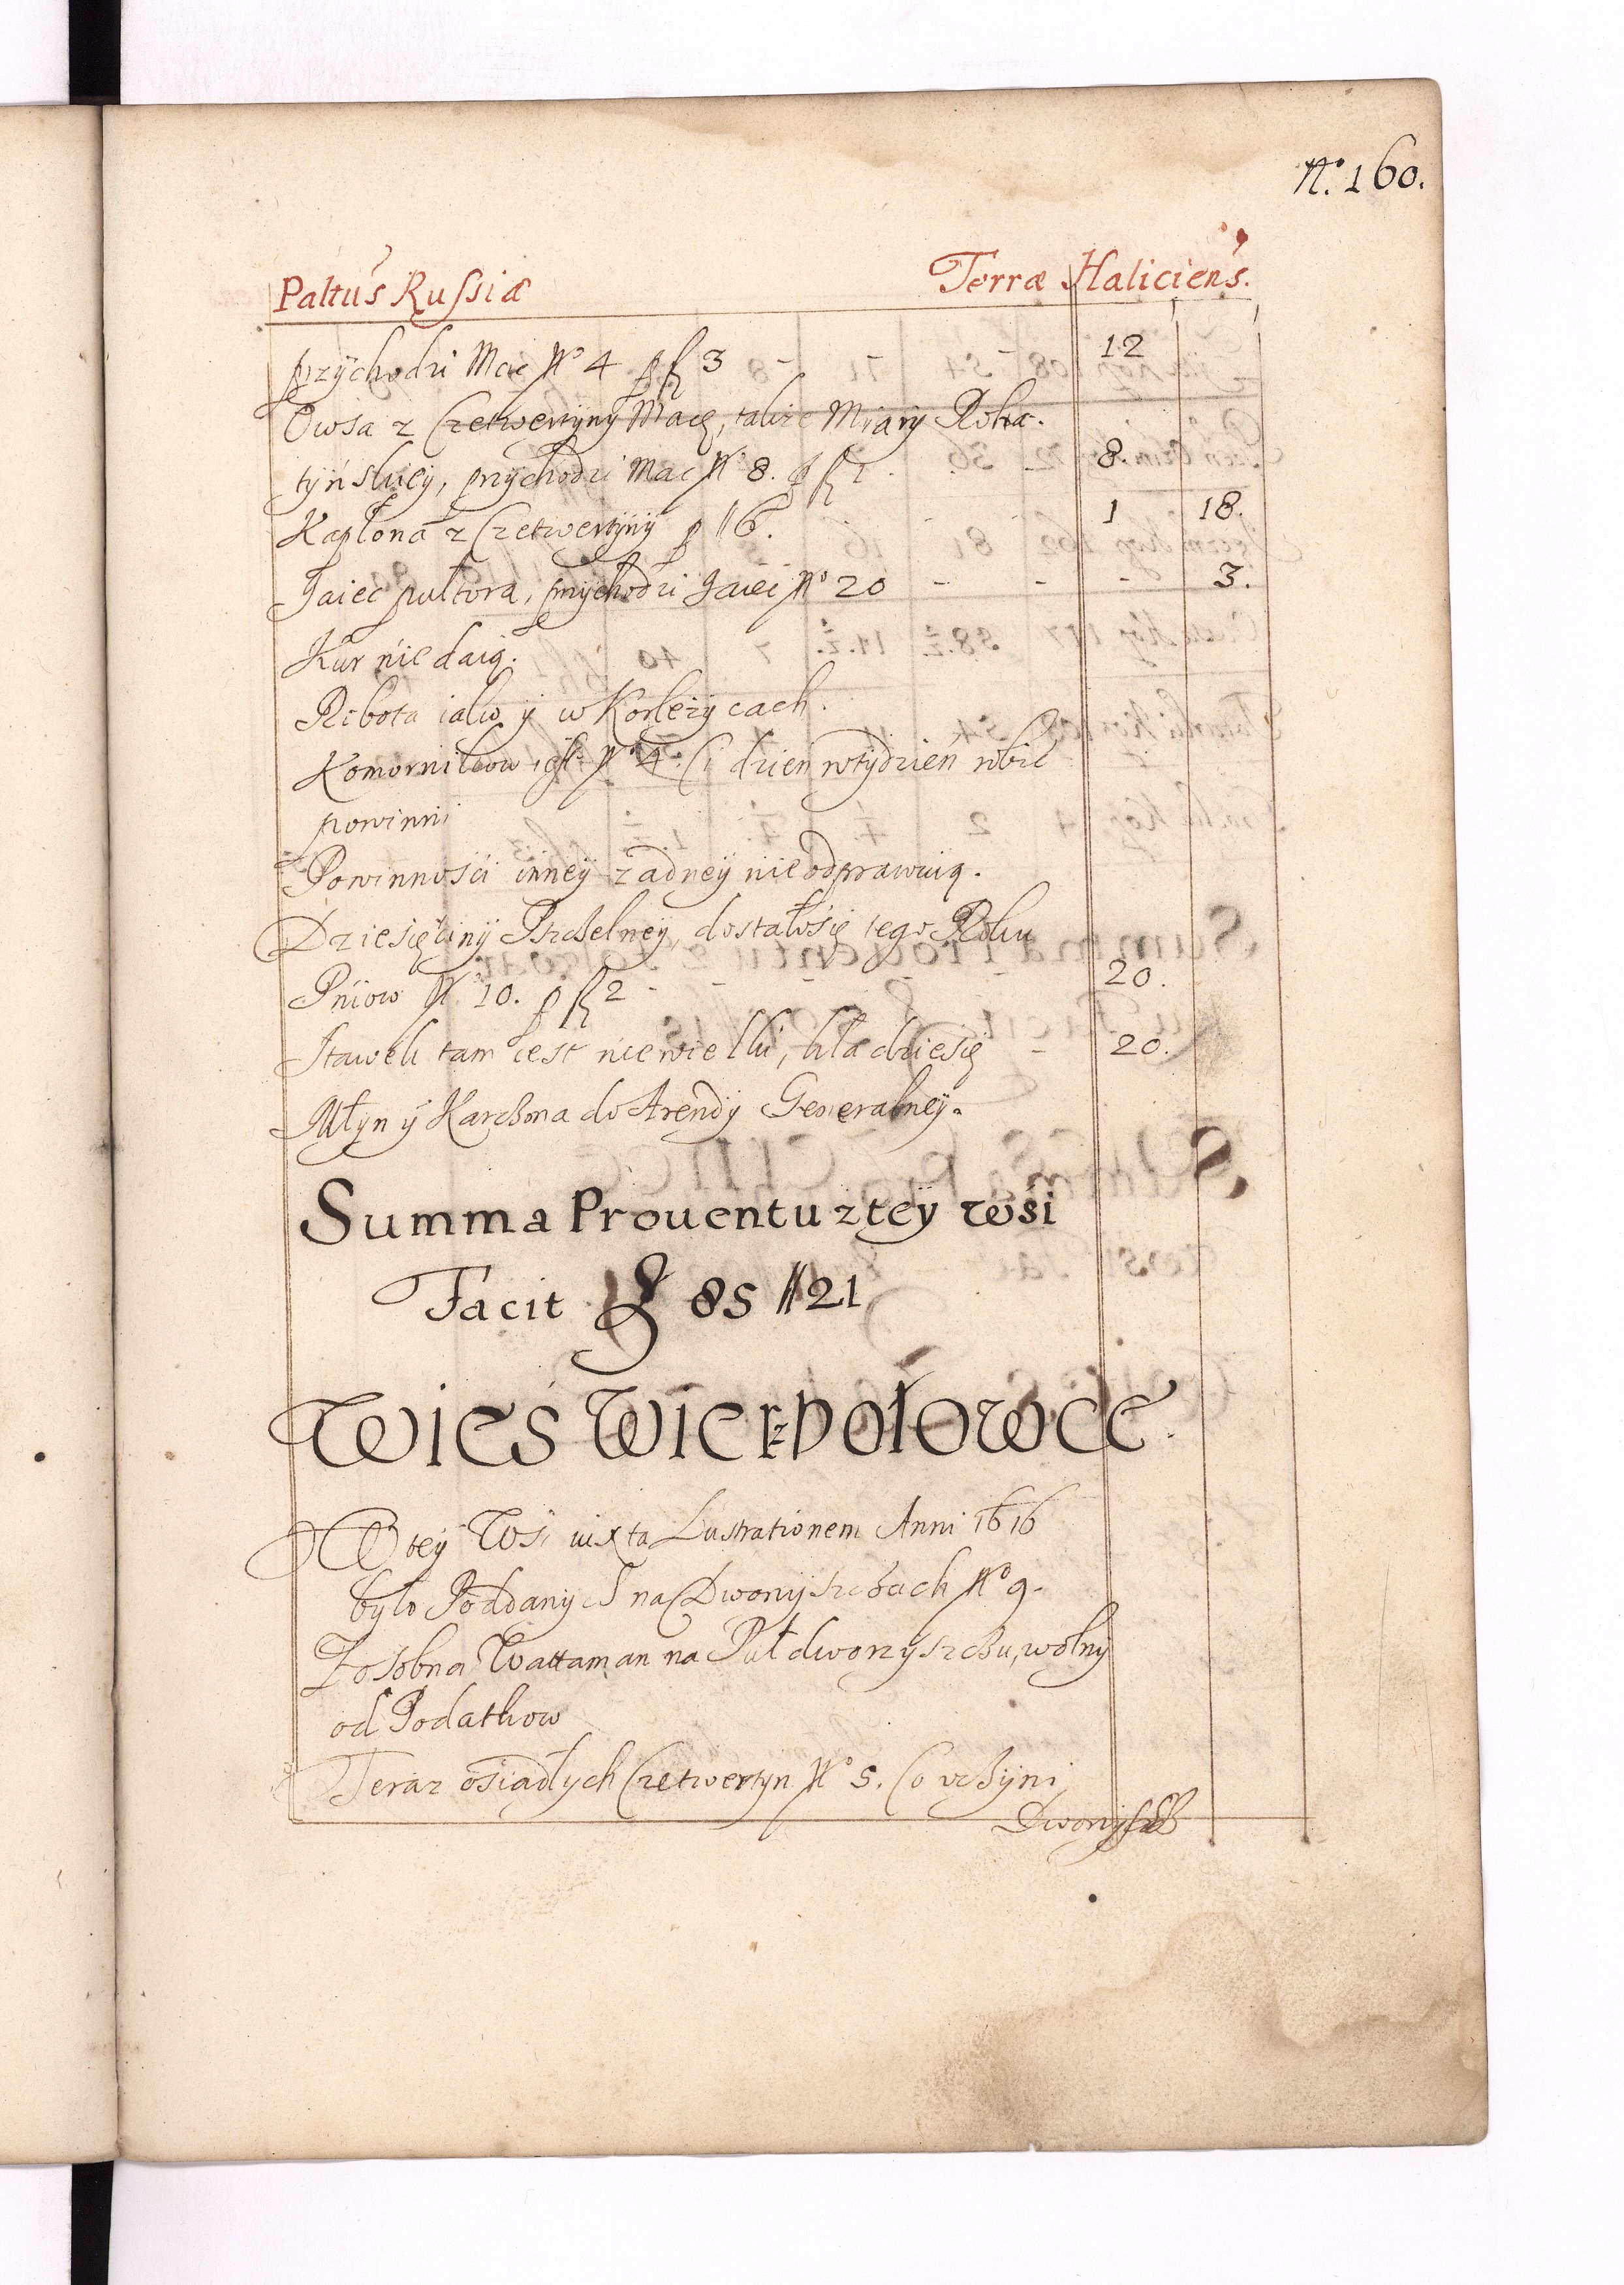 N.º 160.
Pałtus Russiæ Terræ Haliciens.
przÿchodzi Mac Nº 4 p fl 3 12
Owsa z Czetwertÿnÿ Macę, takze Miarÿ Roha-
tÿńskieÿ, przÿchodzi Mac Nº 8. p fl 1. 8.
Kapłona z Czetwertÿnÿ p 6. 1 18.
Jaiec pułtora, przÿchodzi Jaiec Nº 20 - - - 3.
Kur nie daią.
Robota iako ÿ w Korlezÿcach.
Komornikow iest Nº 4. Ci dzien w tÿdzień robić
powinni
Powinnośći inneÿ żadneÿ nie odprawuią.
Dziesięćinÿ Pszczelneÿ, dostało się tego Roku
Pniow Nº 10. p fl 2 - - 20.
Stawek tam iest niewielki, kła dzie się - 20.
Młÿn ÿ Karczma do Arendÿ Generalneÿ.
Summa Prouentu z teÿ Wśi
Facit fl 85 21
Wieś Wierzbołowce
W teÿ Wsi iuxta Lustrationem Anni 1616
bÿło Poddanÿch na Dworzÿszczach Nº 9.
Zosobna Wattaman na Puł dworzÿszczu, wolnÿ
od Podatkow
Teraz ośiadłÿch Czetwertÿn Nº 5. Co vczÿni
Dworzÿszcz